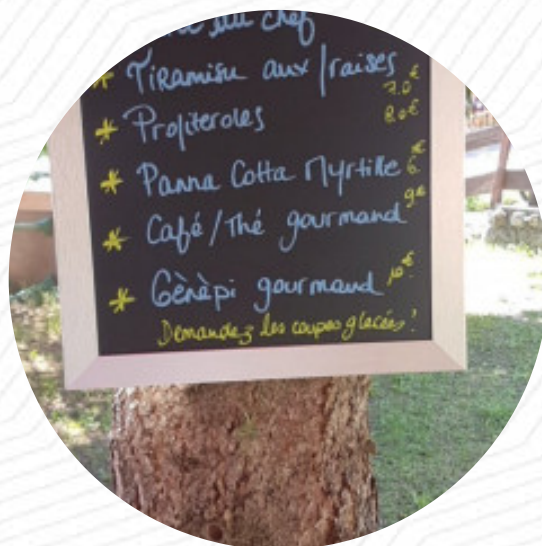 du chef
* Tiramisu aux fraises
7.0€
* Profiteroles 8.0€
* Panna Cotta Myrtille 6.€
* Café/Thé gourmand 9€
* Génèpi gourmand 10€
Demandez les coupes glacées!